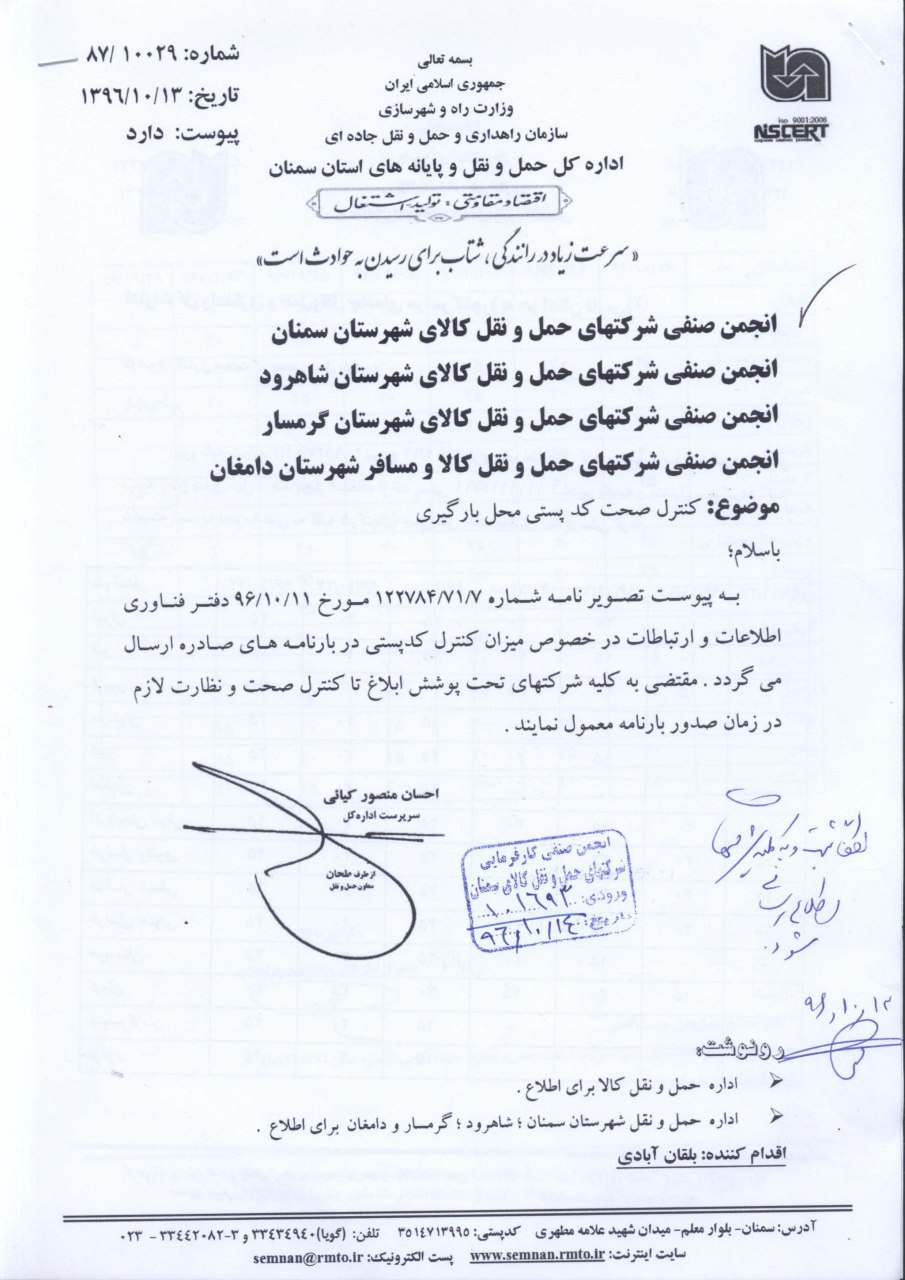 بسمه تعالی
جمهوری اسلامی ایران
وزارت راه و شهرسازی
سازمان راهداری و حمل و نقل جاده ای
اداره کل حمل و نقل و پایانه های استان سمنان
اقتصاد مقاومتی، تولید، اشتغال
شماره: ۱۰۰۲۹ /۸۷
تاریخ: ۱۳۹۶/۱۰/۱۳
پیوست: دارد
iso 9001:2008
NSCERT
« سرعت زیاد در رانندگی، شتاب برای رسیدن به حوادث است»
انجمن صنفی شرکتهای حمل و نقل کالای شهرستان سمنان
انجمن صنفی شرکتهای حمل و نقل کالای شهرستان شاهرود
انجمن صنفی شرکتهای حمل و نقل کالای شهرستان گرمسار
انجمن صنفی شرکتهای حمل و نقل کالا و مسافر شهرستان دامغان
موضوع: کنترل صحت کد پستی محل بارگیری
باسلام؛
به پیوست تصویر نامه شماره ۱۲۲۷۸۴/۷۱/۷ مورخ ۹۶/۱۰/۱۱ دفتر فناوری
اطلاعات و ارتباطات در خصوص میزان کنترل کدپستی در بارنامه های صادره ارسال
می گردد . مقتضی به کلیه شرکتهای تحت پوشش ابلاغ تا کنترل صحت و نظارت لازم
در زمان صدور بارنامه معمول نمایند .
احسان منصور کیائی
سرپرست اداره کل
از طرف طحان
معاون حمل و نقل
انجمن صنفی کارفرمایی
شرکتهای حمل و نقل کالای سمنان
ورودی: ۱۰۱۶۹۳
تاریخ: ۹۶/۱۰/۱۴
شود
رونوشت:
اداره حمل و نقل کالا برای اطلاع .
اداره حمل و نقل شهرستان سمنان ؛ شاهرود ؛ گرمسار و دامغان برای اطلاع .
اقدام کننده: بلقان آبادی
آدرس: سمنان- بلوار معلم- میدان شهید علامه مطهری کدپستی: ۳۵۱۴۷۱۳۹۹۵ تلفن: (گویا) ۳۳۴۳۴۹۴۰ و ۳-۳۳۴۴۲۰۸۲ - ۰۲۳
سایت اینترنت: www.semnan.rmto.ir پست الکترونیک: semnan@rmto.ir